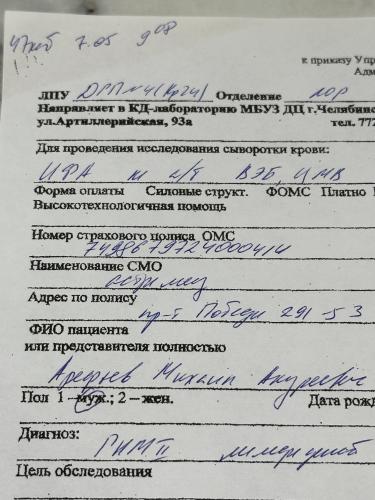 47каб 7.05 9⁰⁸
к приказу Упр
Адм
ЛПУ ДРП№4 Отделение ЛОР
Направляет в КД-лабораторию МБУЗ ДЦ г.Челябинс
ул.Артиллерийская, 93а тел. 772
Для проведения исследования сыворотки крови:
ИФА на а/т ВЭБ, ЦМВ
Форма оплаты Силовые структ. ФОМС Платно
Высокотехнологичная помощь
Номер страхового полиса ОМС
Наименование СМО
Адрес по полису
пр-т Победы 291-53
ФИО пациента
или представителя полностью
Арефьев Михаил Андреевич
Пол 1 – муж.; 2 – жен. Дата рожд
Диагноз:
ГНМ II
Цель обследования